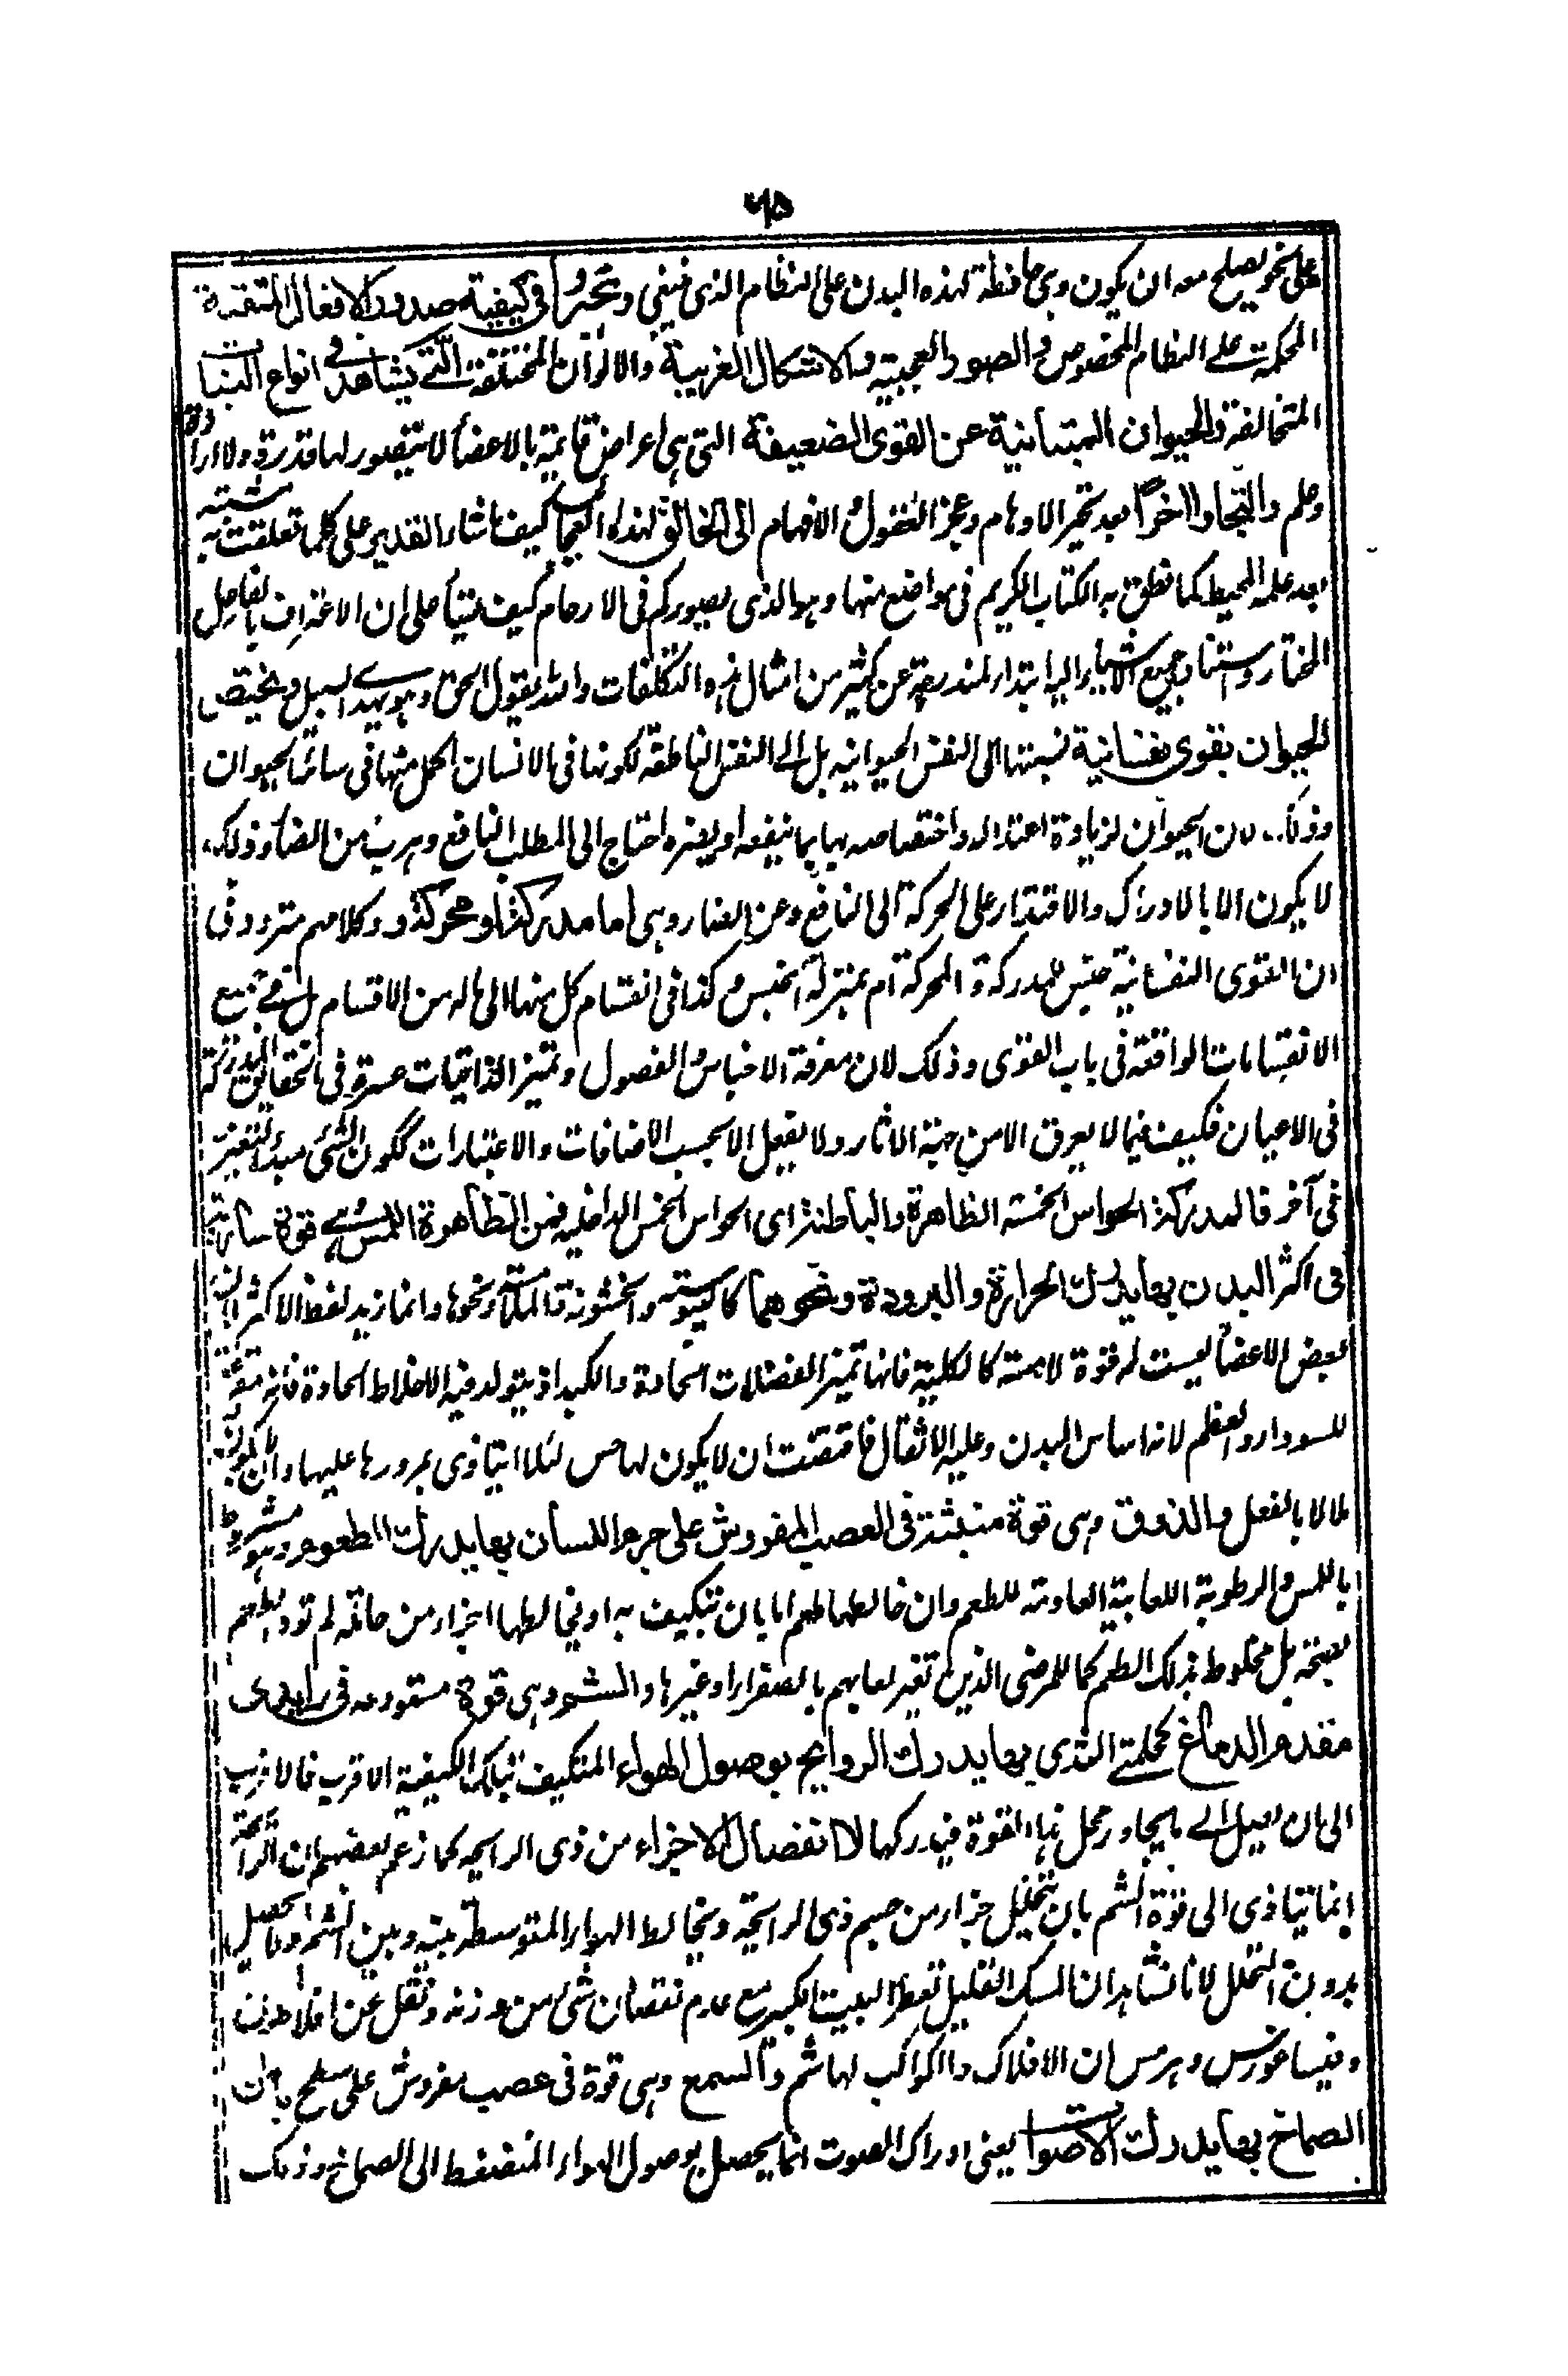 ٦٥
على نحو يصلح معه ان يكون وهى حافظة لهذه البدن على النظام الذى ينبغي وتحيروا فى كيفية صدور الافعال المتقنة
المحكمة على النظام المخصوص والصور العجيبة والاشكال الغريبة والالوان المختلفة التى يشاهد فى انواع النبات
المتخالفة والحيوان المتباينة عن القوى الضعيفة التى هى اعراض قائمة بالاعضاء لا يتصور لها قدرة ولا ارادة
وعلم والتجاوا اخرًا بعد تحير الاوهام وعجز العقول والافهام الى الخالق لهذه العجائب كيف شاء القدير على كلما تعلقت به مشيته
بعد علمه المحيط كما نطق به الكتاب الكريم فى مواضع منها وهو الذى يصوركم فى الارحام كيف يشاء على ان الاعتراف بالفاعل
المختار واستناد جميع الاشياء اليه ابتداء لمندوحة عن كثير من امثال هذه التكلفات والله يقول الحق وهو يهدى السبيل ويختص
الحيوان بقوى نفسانية نسبتها الى النفس الحيوانية بل الى النفس الناطقة لكونها فى الانسان اكمل منها فى سائر الحيوان
وذلك لان الحيوان لزيادة اعتداله واختصاصه بها بما ينفعه او يضره احتاج الى المطلب النافع وهرب من الضار وذلك
لا يكون الا بالادراك والاقتدار على الحركة الى النافع وعن الضار وهى اما مدركة او محركة وكلامهم متردد فى
ان القوى النفسانية جنس للمدركة والمحركة ام بمنزلة الجنس وكذا فى انقسام كل منها الى ماله من الاقسام بل فى جميع
الانقسامات الواقعة فى باب القوى وذلك لان معرفة الاجناس والفصول وتميز الذاتيات عسرة فى الحقائق المدركة
فى الاعيان فكيف فيما لا يعرف الا من جهة الاثار ولا يعقل الا بحسب الاضافات والاعتبارات ككون الشئ مبدأ لتغير
فى آخر فالمدركة الحواس الخمسة الظاهرة والباطنة اى الحواس الخمس الداخلية فمن الظاهرة اللمس وهى قوة سارية
فى اكثر البدن بها يدرك الحرارة والبرودة ونحوهما كاليبوسة والخشونة والملاسة ونحوها وانما زيد لفظ الاكثر لان
بعض الاعضاء ليست له قوة لامسة كالكلية فانها تميز الفضلات الحادة والكبد اذ يتولد فيه الاخلاط الحادة
للسوداء والعظم لانه اساس البدن وعليه الاثقال فاقتضت ان لا يكون لها حس لئلا يتاذى بمرورها عليها
الا بالفعل والذوق وهى قوة منبثة فى العصب المفروش على جرم اللسان بها يدرك الطعوم وهو مشروط
باللمس والرطوبة اللعابية العادمة للطعم وان خالطها طعم اما بان تتكيف به او يخالطها اجزاء من حامله لم تؤد الطعم
بصحة بل مخلوط بذلك الطعم كما للمرضى الذين تغير لعابهم بالصفراء او غيرها والشم وهى قوة مستودعة فى زايدتى
مقدم الدماغ كحلمتى الثدى بها يدرك الروايح بوصول الهواء المتكيف بتلك الكيفية الاقرب فالاقرب
الى ان يصل الى ما يجاور محل هذه القوة فيدركها لا انفصال الاجزاء من ذى الرايحة كما زعم بعضهم ان الرائحة
انما يتاذى الى قوة الشم بان يتحلل اجزاء من جسم ذى الرايحة ويخالط الهواء المتوسط بينه وبين
بدون التحلل لانا نشاهد ان المسك القليل تعطر البيت الكبير مع عدم نقصان شئ من وزنه ونقل عن افلاطون
وفيثاغورس وهرمس ان الافلاك والكواكب لها شم والسمع وهى قوة فى عصب مفروش على سطح باطن
الصماخ بها يدرك الاصوات يعنى ادراك الصوت انما يحصل بوصول الهواء المنضغط الى الصماخ وذلك